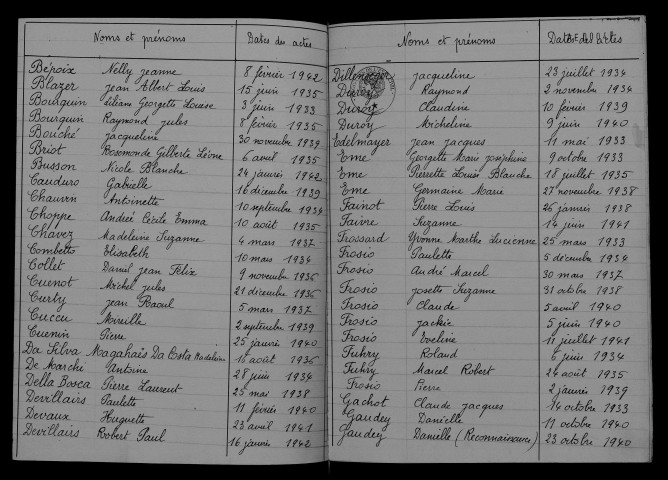 Noms et prénoms Dates des actes
Bépoix Nelly jeanne 8 février 1942
Blazer jean Albert Louis 15 juin 1935
Bourquin Liliane Georgette Louise 3 juin 1933
Bourquin Raymond jules 8 février 1935
Bouché jacqueline 30 novembre 1939
Briot Rosemonde Gilberte Léone 6 avril 1935
Busson Nicole Blanche 24 janvier 1942
Cauduro Gabrielle 16 décembre 1939
Chauvin Antoinette 10 septembre 1934
Choppe Andrée Cécile Emma 10 août 1935
Chavez Madeleine Suzanne 4 mars 1937
Combetto Elisabeth 10 mars 1934
Collet Daniel jean Félix 9 novembre 1936
Cuenot Michel jules 21 décembre 1936
Curly jean Raoul 5 mars 1937
Cuccu Mireille 2 septembre 1939
Cuenin Pierre 25 janvier 1940
Da Silva Magahais Da Costa Madeleine 16 août 1936
De Marche Antoine 28 juin 1934
Della Bosca Pierre Laurent 25 mai 1938
Devillairs Paulette 11 février 1940
Devaux Huguette 23 avril 1941
Devillairs Robert Paul 16 janvier 1942
Noms et prénoms Dates des Actes
jacqueline 23 juillet 1934
Duroy Raymond 2 novembre 1934
Duroy Claudine 10 février 1939
Duroy Micheline 9 juin 1940
Edelmayer jean jacques 11 mai 1933
Eme Georgette Marie joséphine 9 octobre 1933
Eme Pierrette Louise Blanche 18 juillet 1935
Eme Germaine Marie 27 novembre 1938
Fainot Pierre Louis 26 janvier 1938
Faivre Suzanne 14 juin 1941
Frossard Yvonne Marthe Lucienne 25 mars 1933
Frosio Paulette 5 décembre 1934
Frosio André Marcel 30 mars 1937
Frosio josette Suzanne 31 octobre 1938
Frosio Claude 5 avril 1940
Frosio jackie 5 juin 1940
Frosio Eveline 11 juillet 1941
Fuhry Roland 6 juin 1934
Fuhry Marcel Robert 24 août 1935
Frosio Pierre 2 janvier 1939
Gachot Claude jacques 14 octobre 1933
Gaudey Danielle 11 octobre 1940
Gaudey Danielle (Reconnaissance) 23 octobre 1940